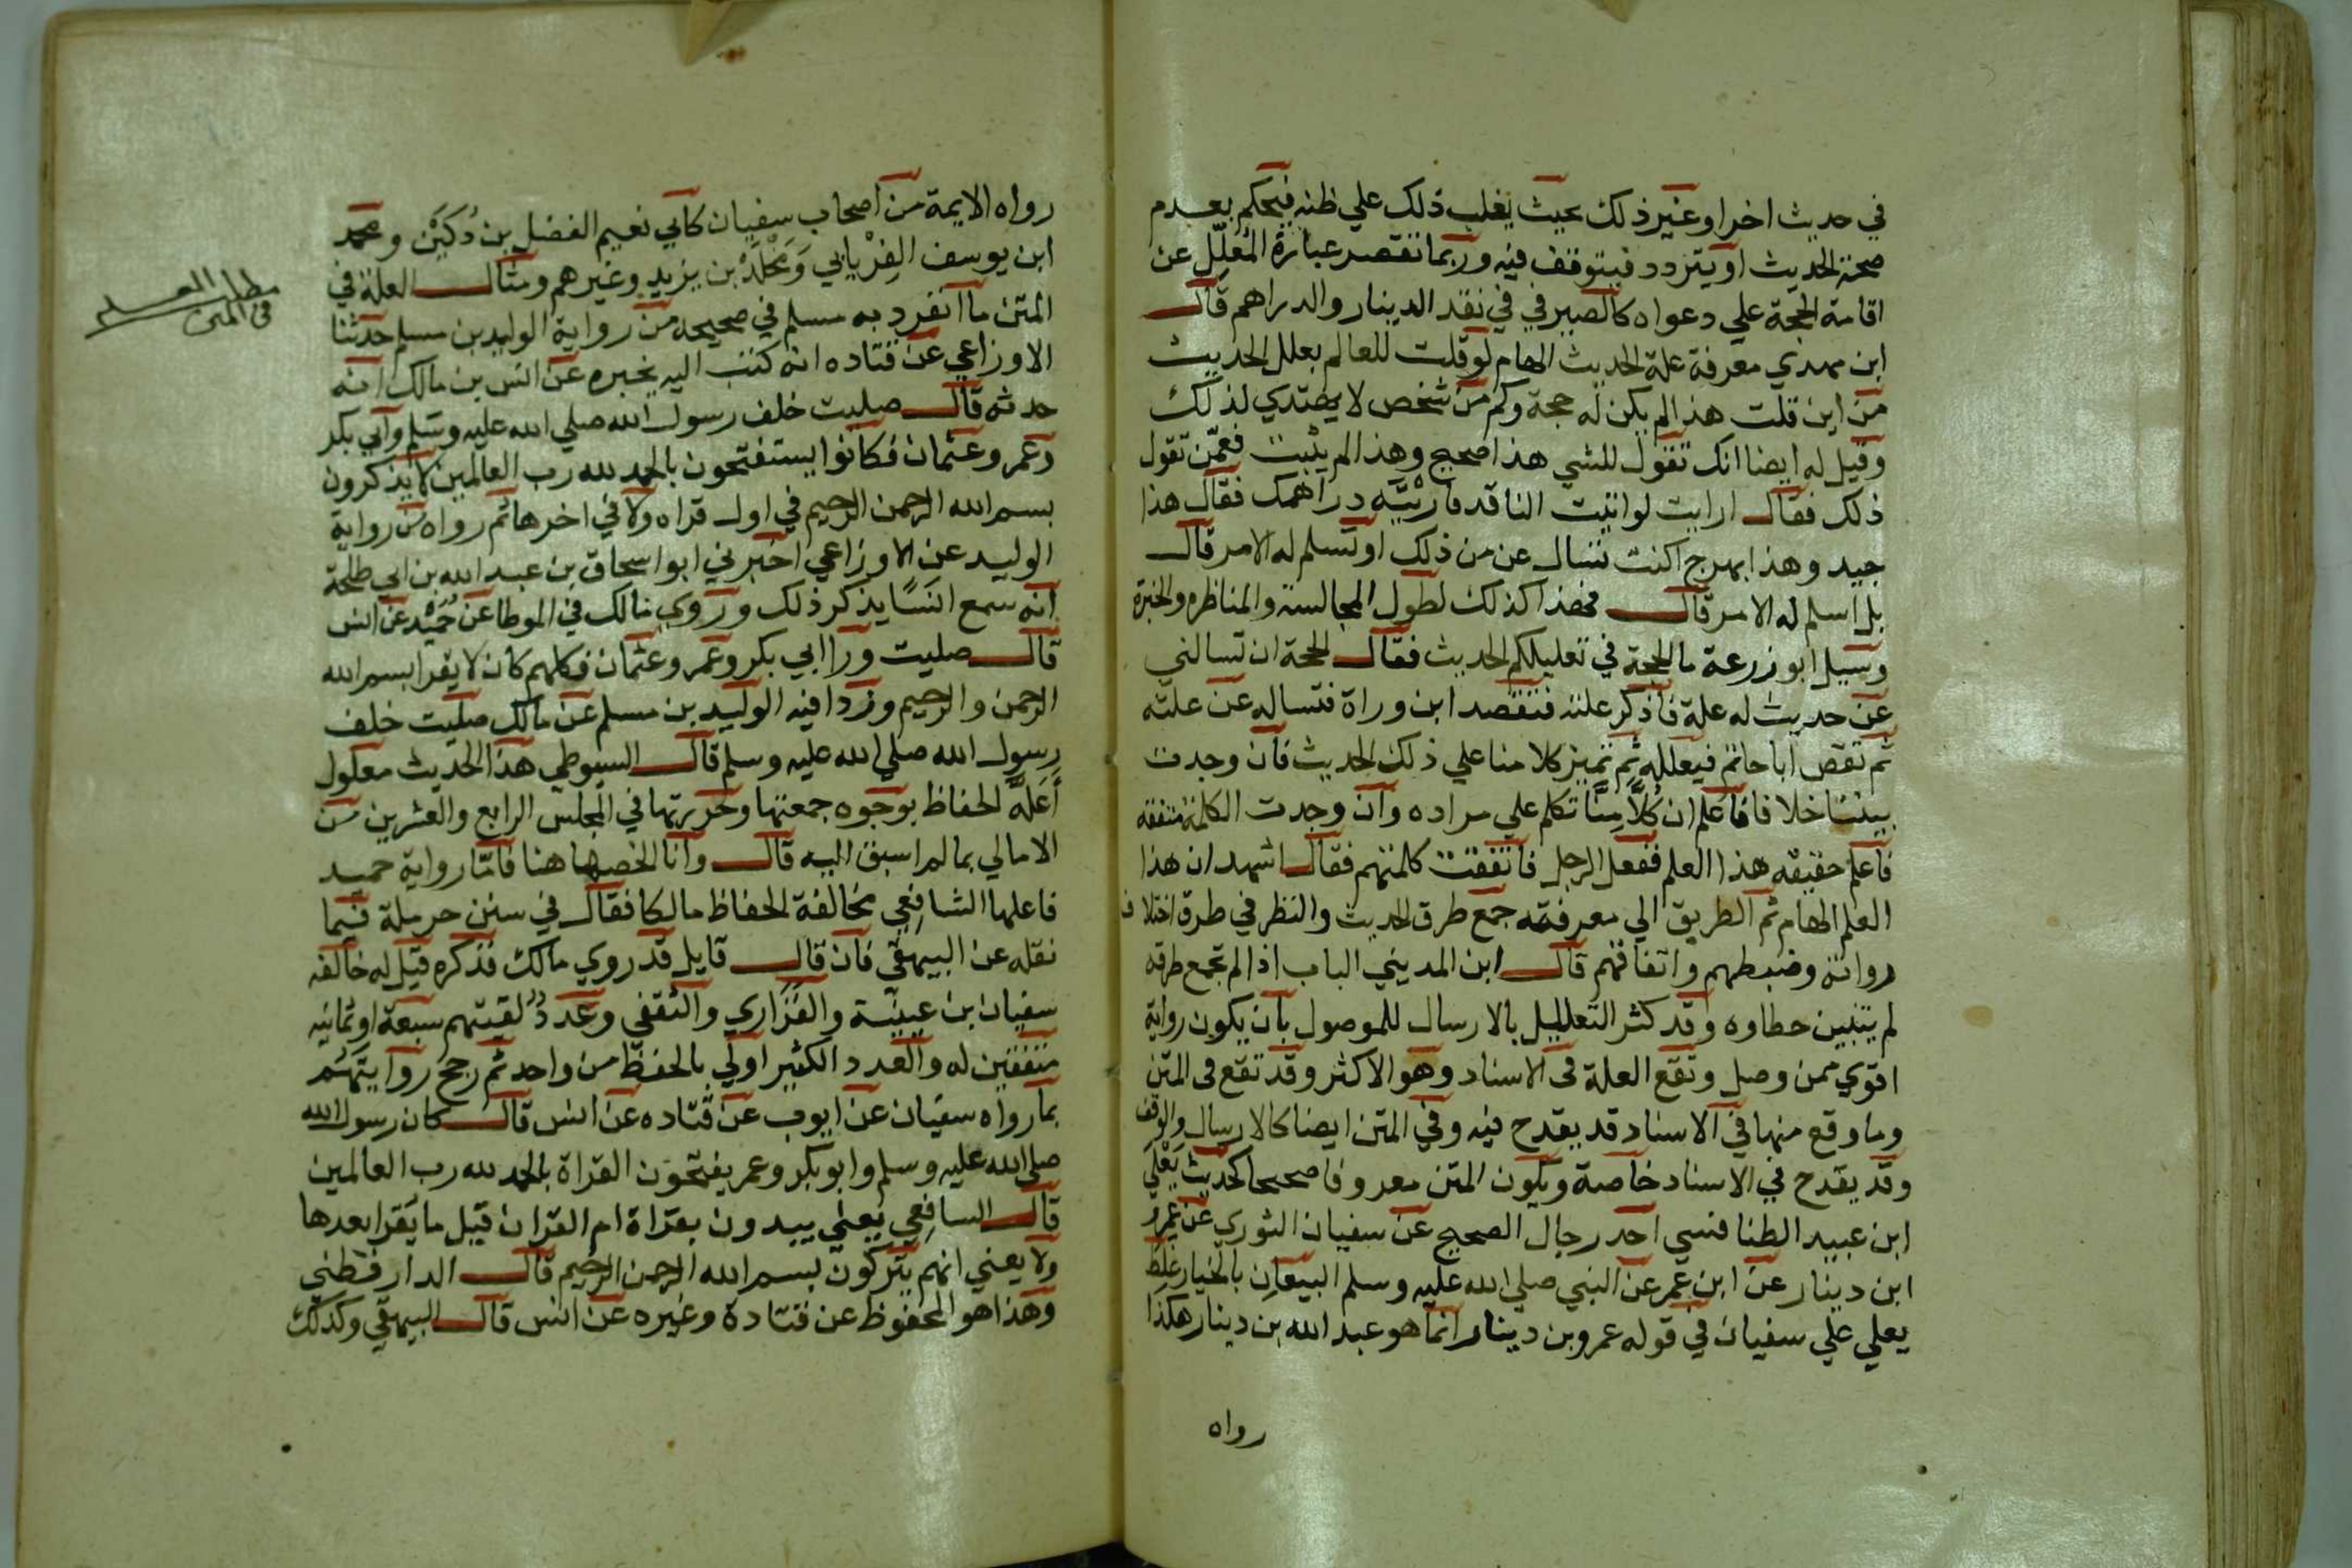 في حديث اخر او غير ذلك بحيث يغلب ذلك علي ظنه فيحكم بعدم
صحة الحديث او يتردد فيتوقف فيه وربما تقصر عبارة المُعَلِّل عن
اقامة الحجة علي دعواه كالصيرفي في نقد الدينار والدراهم قال
ابن مهدي معرفة علة الحديث الهام لو قلت للعالم بعلل الحديث
من اين قلت هذا لم يكن له حجة وكم من شخص لا يهتدي لذلك
وقيل له ايضا انك تقول للشي هذا صحيح وهذا لم يثبت فعمّن تقول
ذلك فقال ارايت لو اتيت الناقد فاريْتَه دراهمك فقال هذا
جيد وهذا بهرج اكنت تسال عن من ذلك او تسلم له الامر قال
بل اسلم له الامر قال فهذا كذلك لطول المجالسة والمناظره والخبرة
وسيل ابو زرعة ما الحجة في تعليلكم الحديث فقال الحجة ان تسالني
عن حديث له علة فاذكر علته فتقصد ابن وراة فتساله عن علته
ثم تقص ابا حاتم فيعلله ثم تميز كلامنا علي ذلك الحديث فان وجدت
بيننا خلافا فاعلم ان كُلاًّ مِنَّا تكلم علي مراده وان وجدت الكلمة متفقة
فاعلم حقيقه هذا العلم ففعل الرجل فاتفقت كلمتهم فقال اشهد ان هذا
العلم الهام ثم الطريق الي معرفته جمع طرق الحديث والنظر في طرق اختلاف
رواته وضبطهم واتفاقهم قال ابن المديني الباب اذا لم تجمع طرقه
لم يتبين خطاوه وقد كثر التعليل بالارسال للموصول بان يكون رواية
اقوي ممن وصل وتقع العلة في الاسناد وهو الاكثر وقد تقع في المتن
وما وقع منها في الاسناد قد يقدح فيه وفي المتن ايضا كالارسال والوقف
وقد يقدح في الاسناد خاصة ويكون المتن معروفا صحيحا كحديث يَعْلَي
ابن عبيد الطنافسي احد رجال الصحيح عن سفيان الثوري عن عمرو
ابن دينار عن ابن عمر عن النبي صلي الله عليه وسلم البيعان بالخيار غلط
يعلي علي سفيان في قوله عمرو بن دينار انما هو عبد الله بن دينار هكذا
رواه
رواه الايمة من اصحاب سفيان كابي نعيم الفضل بن دُكَيْن ومحمد
ابن يوسف الفِرْيابي وَمَخْلَدْ بن يزيد وغيرهم ومثال العلة في
المتن ما انفرد به مسلم في صحيحه من رواية الوليد بن مسلم حدثنا
الاوزاعي عن قتاده انه كتب اليه يخبره عن انس بن مالك انه
حدثه قال صليت خلف رسول الله صلي الله عليه وسلم وابي بكر
وعمر وعثمان فكانوا يستفتحون بالحمد لله رب العالمين لا يذكرون
بسم الله الرحمن الرحيم في اول قراه ولا في اخرها ثم رواه من رواية
الوليد عن الاوزاعي اخبرني ابو اسحاق بن عبد الله بن ابي طلحة
انه سمع انَسًا يذكر ذلك وروي مالك في الموطا عن حُمَيْد عن انس
قال صليت ورا ابي بكر وعمر وعثمان فكلهم كان لا يقرا بسم الله
الرحمن والرحيم وزاد فيه الوليد بن مسلم عن مالك صليت خلف
رسول الله صلي الله عليه وسلم قال السيوطي هذا الحديث معلول
أَعَلَّه الحفاظ بوجوه جمعتها وحررتها في المجلس الرابع والعشرين من
الامالي بما لم اسبق اليه قال وانا الخصها هنا فامّا رواية حميد
فاعلها الشافعي بمخالفة الحفاظ مالكا فقال في سنن حرملة فيما
نقله عن البيهقي فان قال قايل قد روي مالك فذكره قيل له خالفه
سفيان ابن عيينة والفَزَاري والثقفي وعدد لقيتهم سبعة او ثمانيه
متفقين له والعدد الكثير اولي بالحفظ من واحد ثم رجح روايتهم
بما رواه سفيان عن ايوب عن قتاده عن انس قال كان رسول الله
صلي الله عليه وسلم وابو بكر وعمر يفتحون القراة بالحمد لله رب العالمين
قال السافعي يعني يبدون بقراة ام القران قبل ما يقرا بعدها
ولا يعني انهم يتركون بسم الله الرحمن الرحيم قال الدارقطني
وهذا هو المحفوظ عن قتادة وغيره عن انس قال البيهقي وكذلك
في المتن